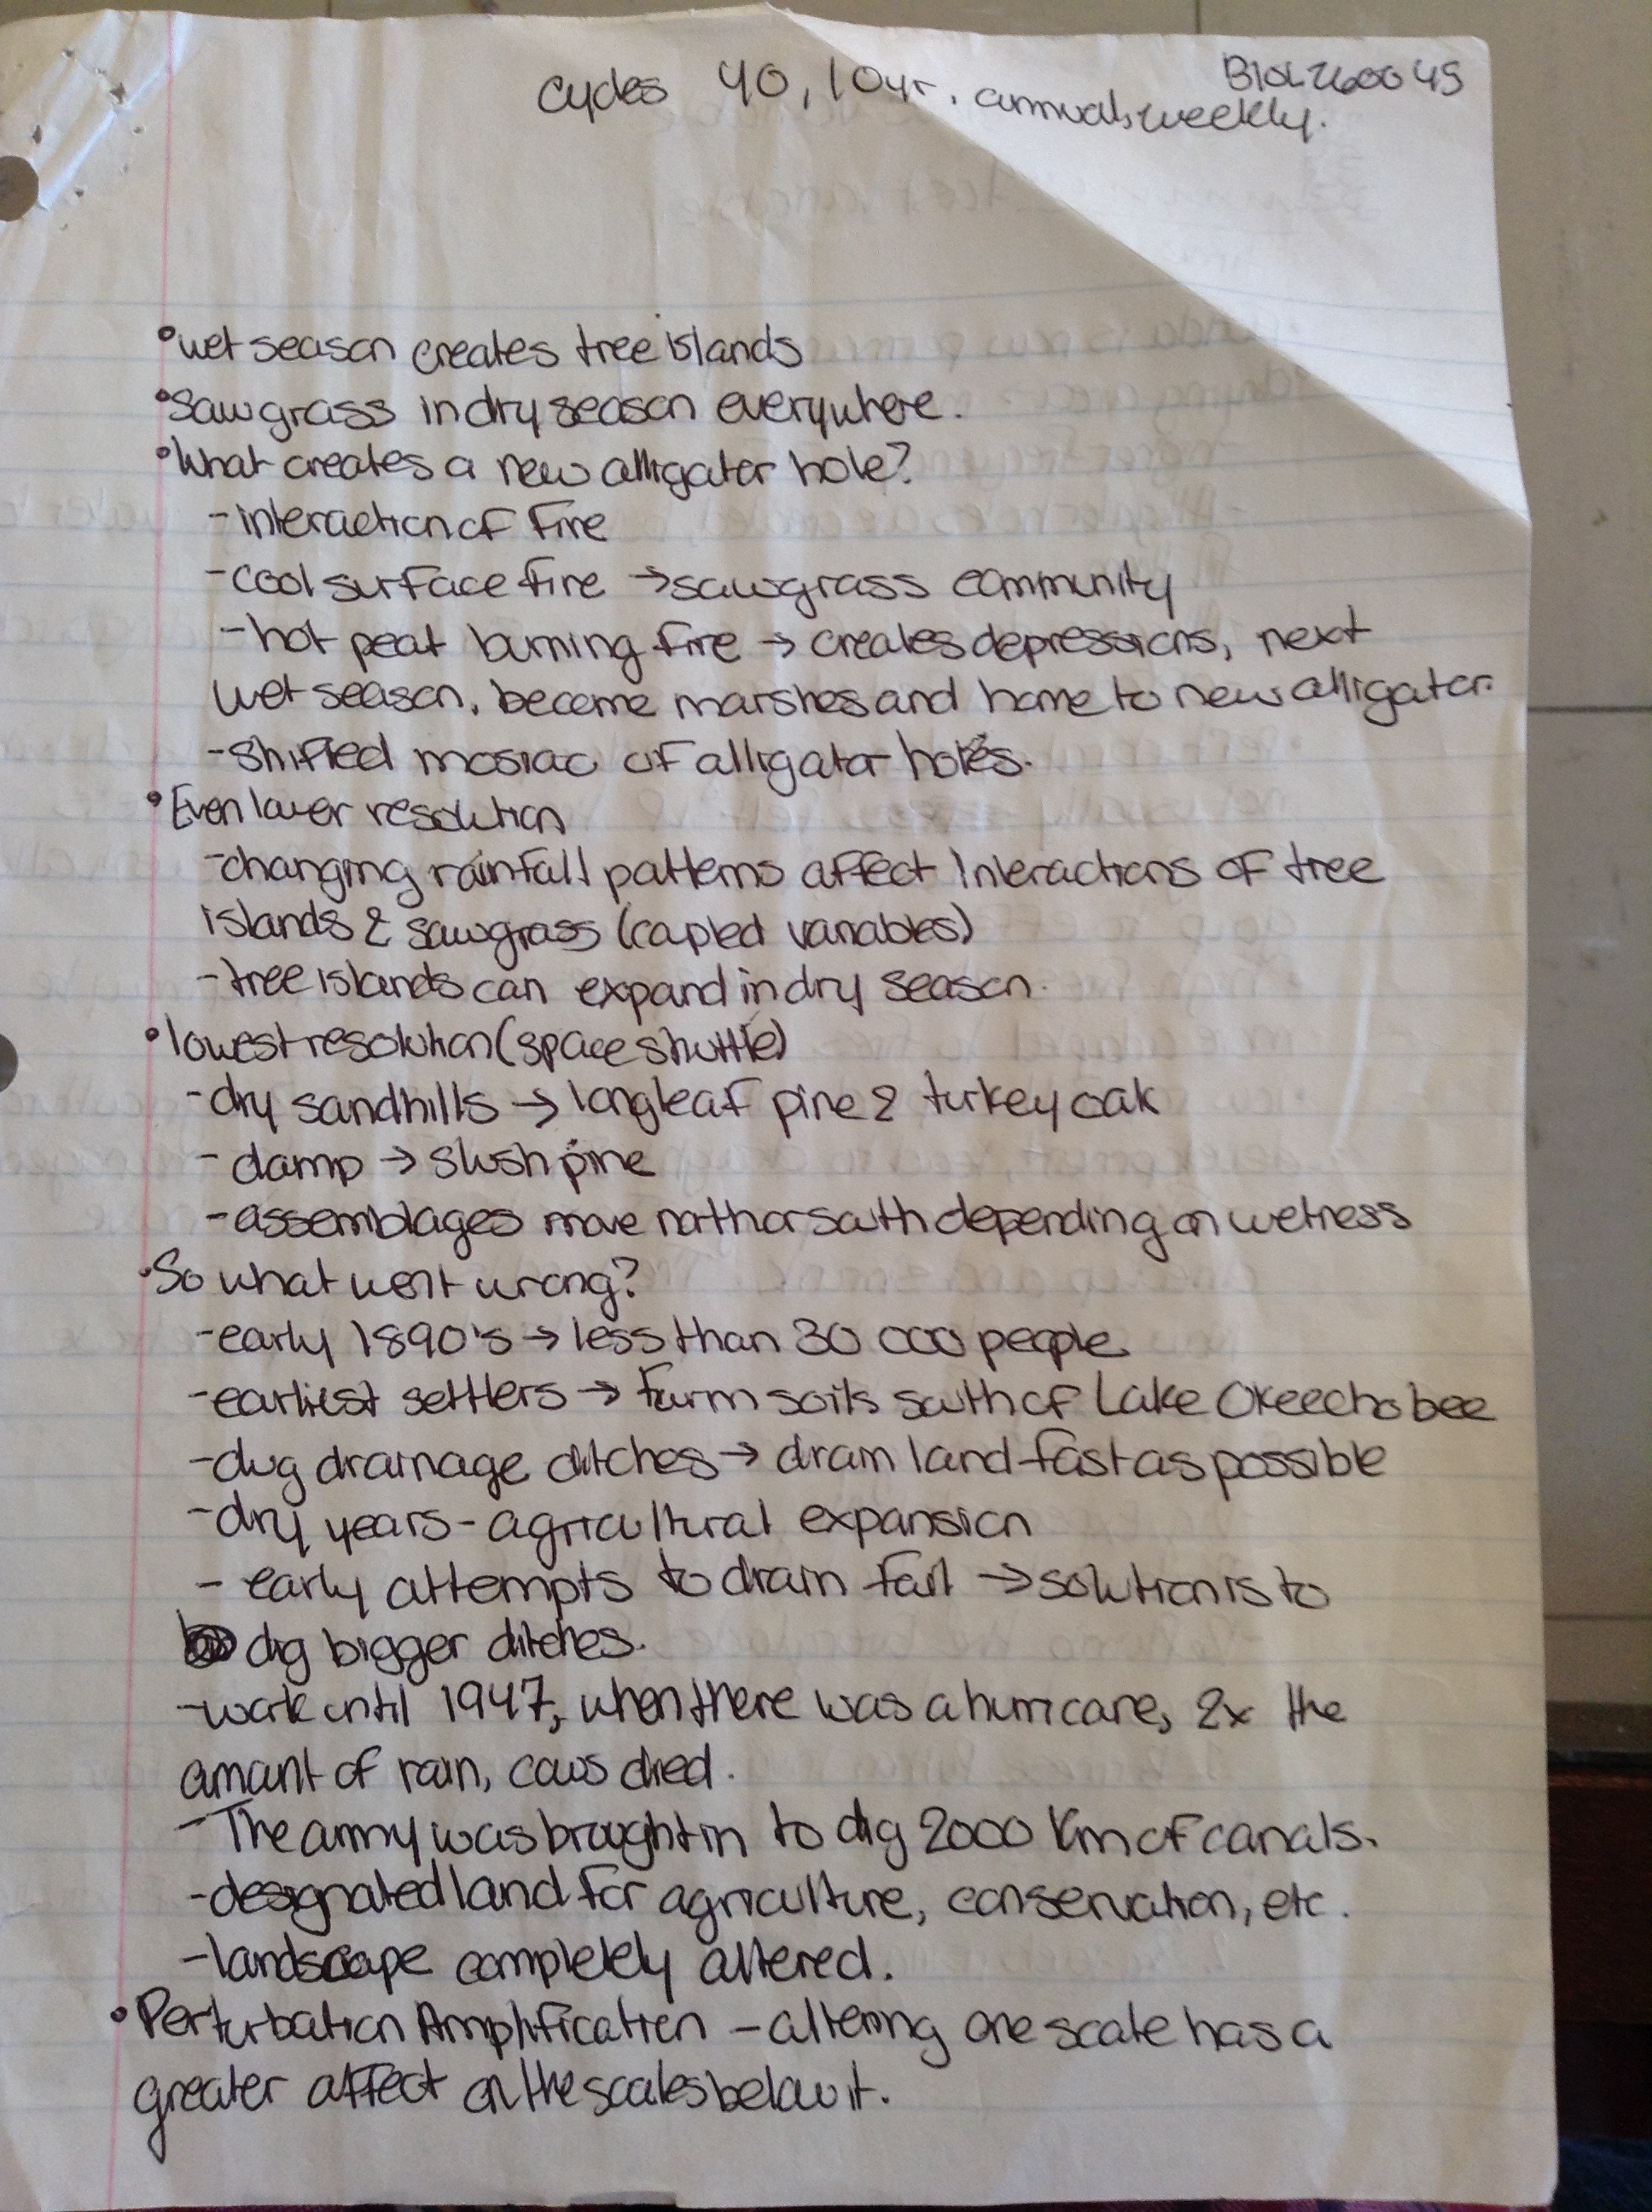 BIOL2600 49
cycles 40, 10yr, annual, weekly.
•wet season creates tree islands
•sawgrass in dry season everywhere.
•What creates a new alligator hole?
-interaction of fire
-cool surface fire →sawgrass community
-hot peat burning fire → creates depressions, next
wet season, become marshes and home to new alligator.
-shifted mosiac of alligator holes.
•Even lower resolution
-changing rainfall patterns affect interactions of tree
islands & sawgrass (coupled variables)
-tree islands can expand in dry season.
•lowest resolution (space shuttle)
-dry sandhills → longleaf pine & turkey oak
-damp → slush pine
-assemblages move north or south depending on wetness
•So what went wrong?
-early 1890's → less than 30 000 people
-earliest settlers → farm soils south of Lake Okeechobee
-dug drainage ditches → drain land fast as possible
-dry years - agricultural expansion
- early attempts to drain fail → solution is to
dig bigger ditches.
-work until 1947, when there was a hurricane, 2x the
amount of rain, cows died.
-The army was brought in to dig 2000 km of canals.
-designated land for agriculture, conservation, etc.
-landscape completely altered.
•Perturbation Amplification - altering one scale has a
greater affect on the scales below it.